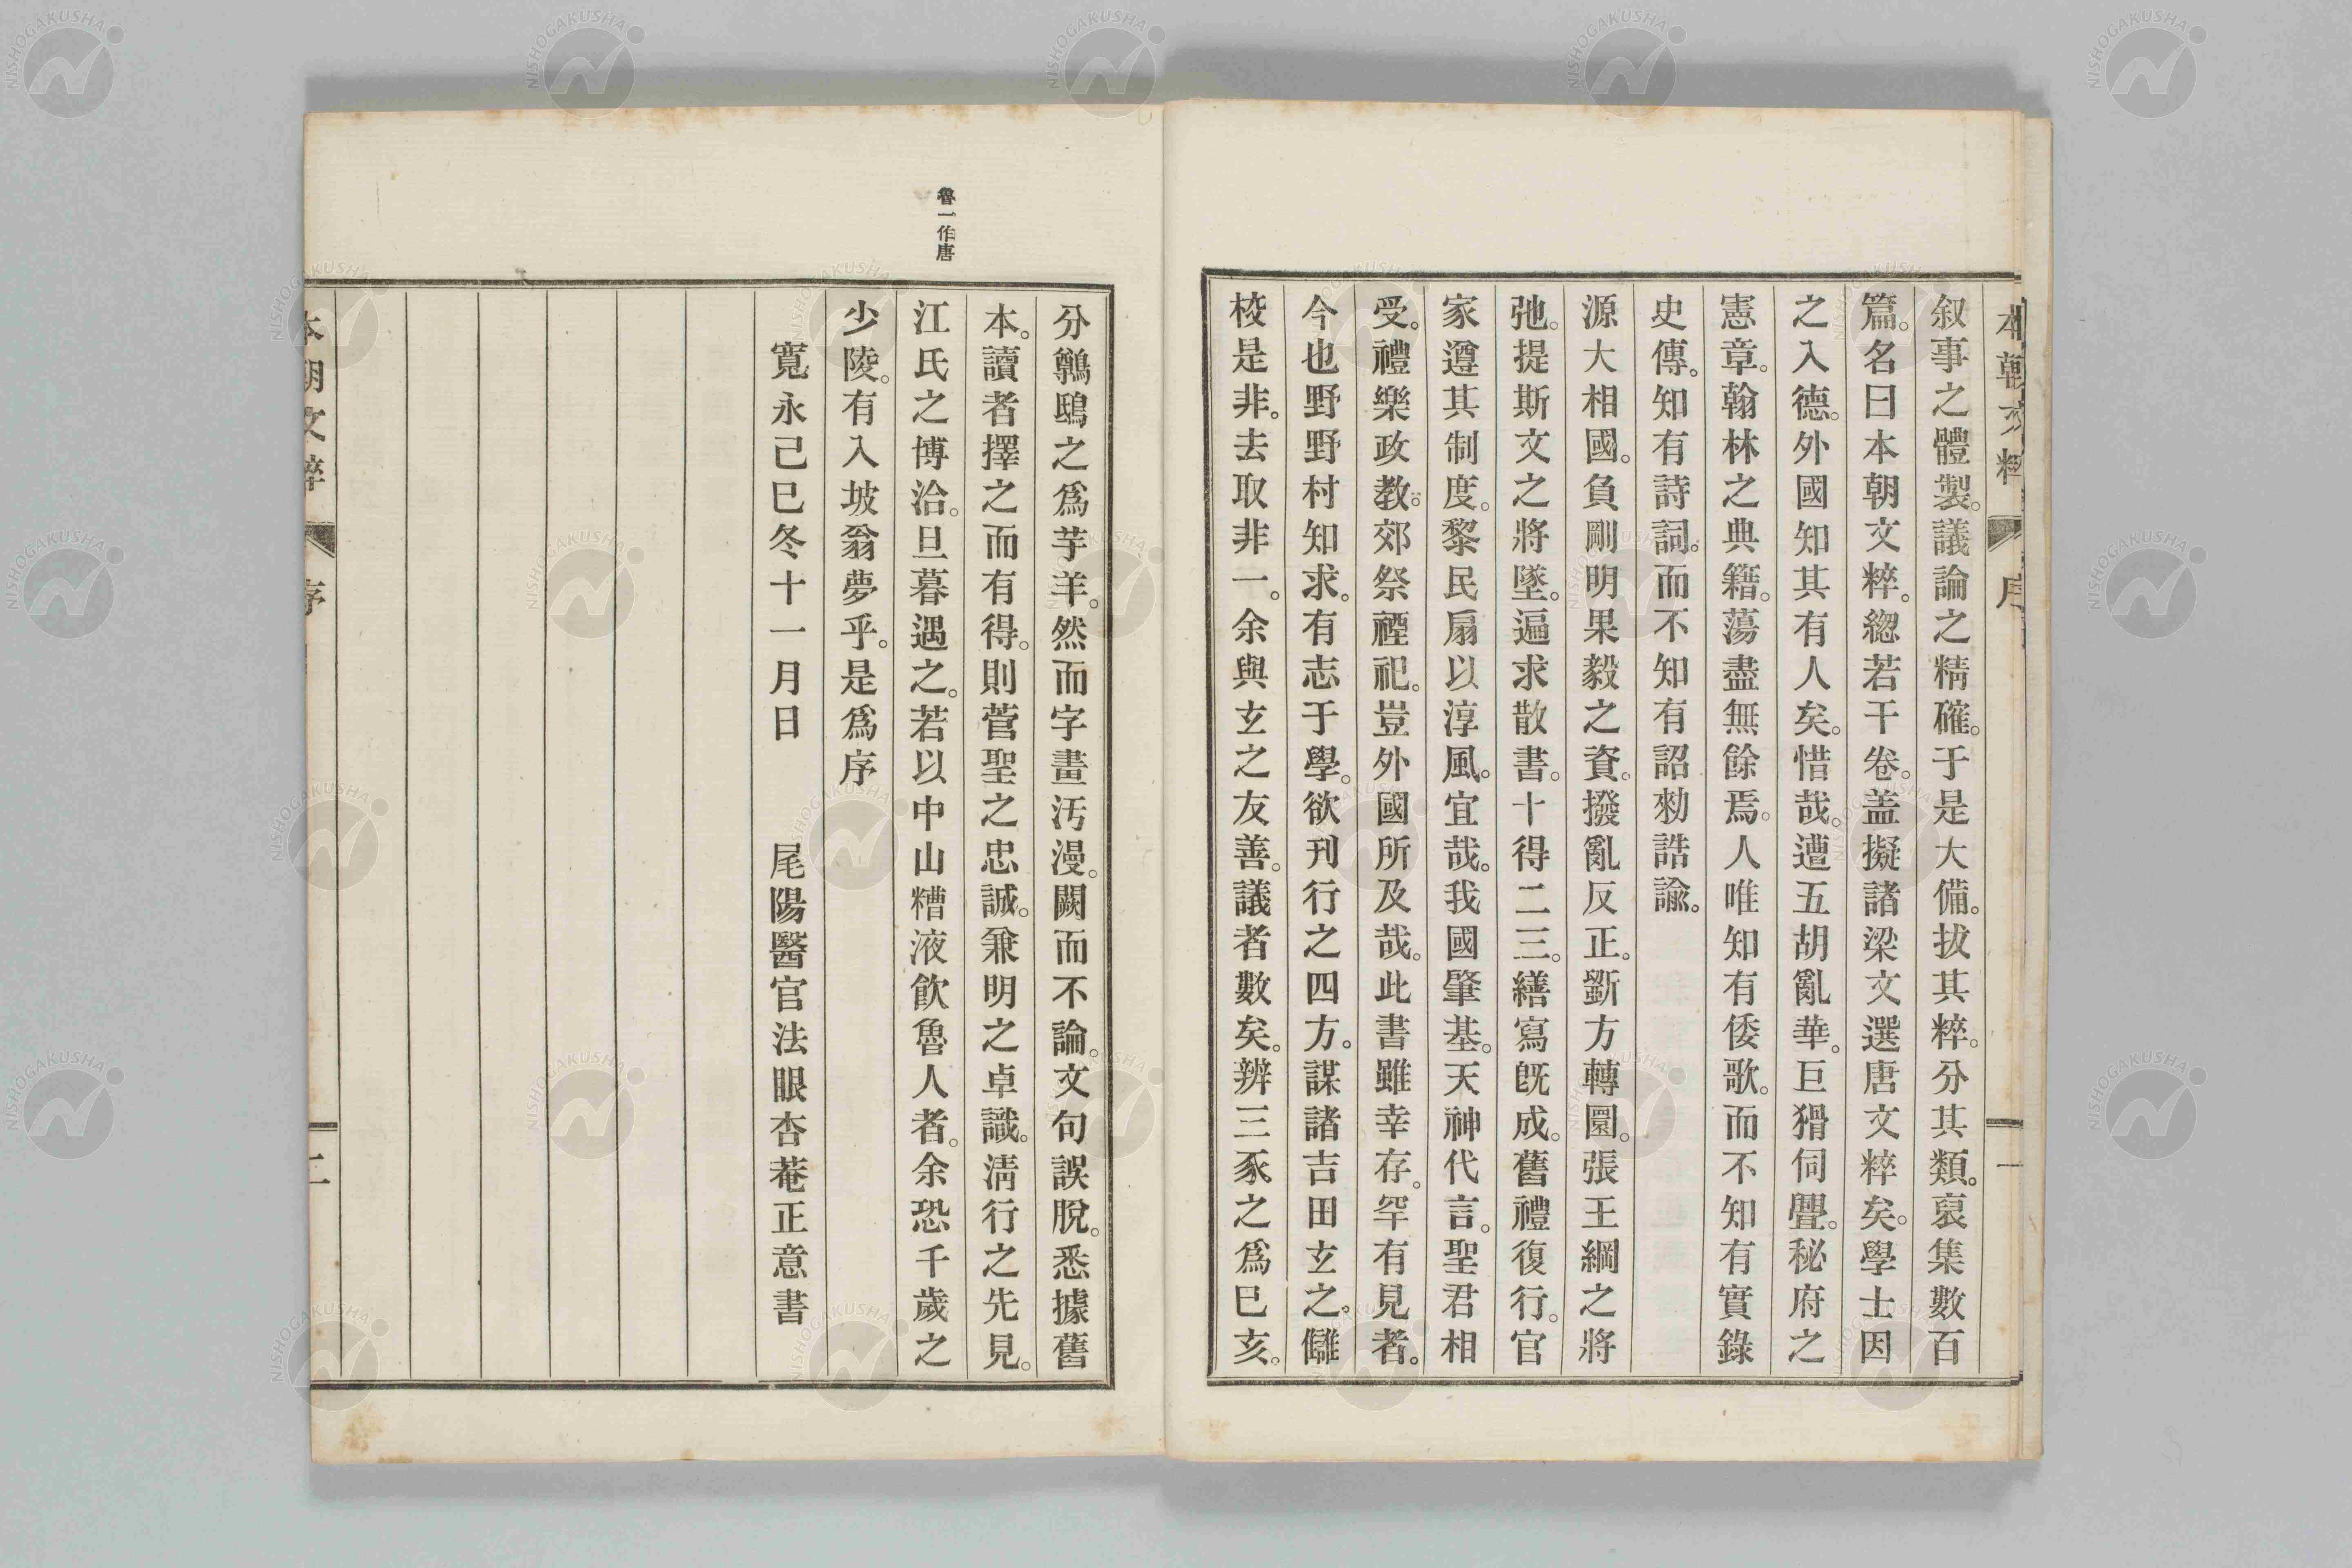 叙事之體製。議論之精確。于是大備。拔其粹。分其類。裒集數百
篇。名曰本朝文粹。緫若干卷。盖擬諸梁文選唐文粹矣。學士因
之入德。外國知其有人矣。惜哉。遭五胡亂華。巨猾伺釁。秘府之
憲章。翰林之典籍。蕩盡無餘焉。人唯知有倭歌。而不知有實錄
史傳。知有詩詞。而不知有詔勅誥諭。
源大相國。負剛明果毅之資。撥亂反正。斲方轉圜。張王綱之將
弛。提斯文之將墜。遍求散書。十得二三。繕寫既成。舊禮復行。官
家遵其制度。黎民扇以淳風。宜哉。我國肇基。天神代言。聖君相
受。禮樂政教。郊祭禋祀。豈外國所及哉。此書雖幸存。罕有見者。
今也野野村知求。有志于學。欲刊行之四方。謀諸吉田玄之。讎
校是非。去取非一。余與玄之友善。議者數矣。辨三豕之爲巳亥。
分鶉鴟之爲芋羊。然而字畫汚漫。闕而不論。文句誤脫。悉據舊
本。讀者擇之而有得。則菅聖之忠誠。兼明之卓識。淸行之先見。
江氏之博洽。旦暮遇之。若以中山糟液飮魯人者。余恐千歲之
少陵。有入坡翁夢乎。是爲序
寬永己巳冬十一月日 尾陽醫官法眼杏菴正意書
魯一作唐
本朝文粹 序 一
本朝文粹 序 二
NISHOGAKUSHA